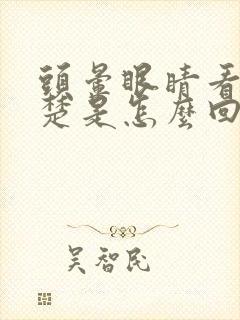 頭暈眼睛看
楚是怎麼回
吴智民